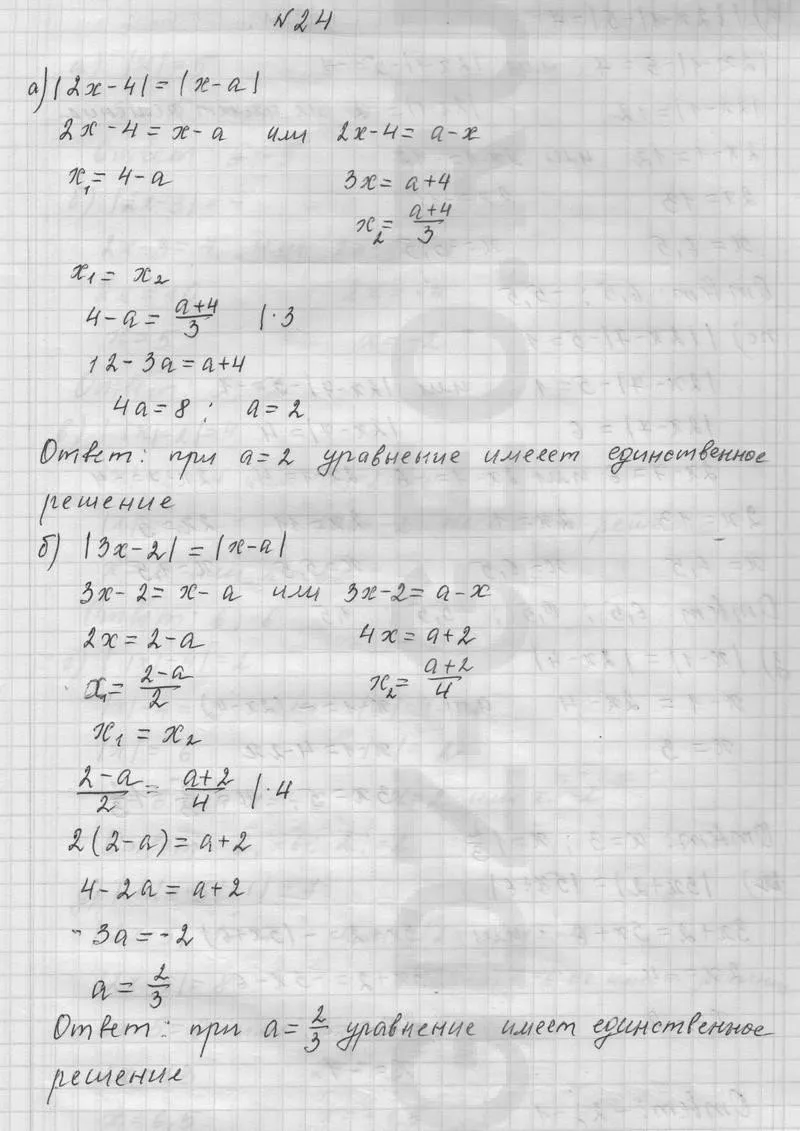 №24
а) |2x-4|=|x-a|
2x-4=x-a или 2x-4=a-x
x₁=4-a 3x=a+4
x₂=(a+4)/3
x₁=x₂
4-a=(a+4)/3 |·3
12-3a=a+4
4a=8; a=2
Ответ: при a=2 уравнение имеет единственное
решение
б) |3x-2|=|x-a|
3x-2=x-a или 3x-2=a-x
2x=2-a 4x=a+2
x₁=(2-a)/2 x₂=(a+2)/4
x₁=x₂
(2-a)/2=(a+2)/4 |·4
2(2-a)=a+2
4-2a=a+2
-3a=-2
a=2/3
Ответ: при a=2/3 уравнение имеет единственное
решение